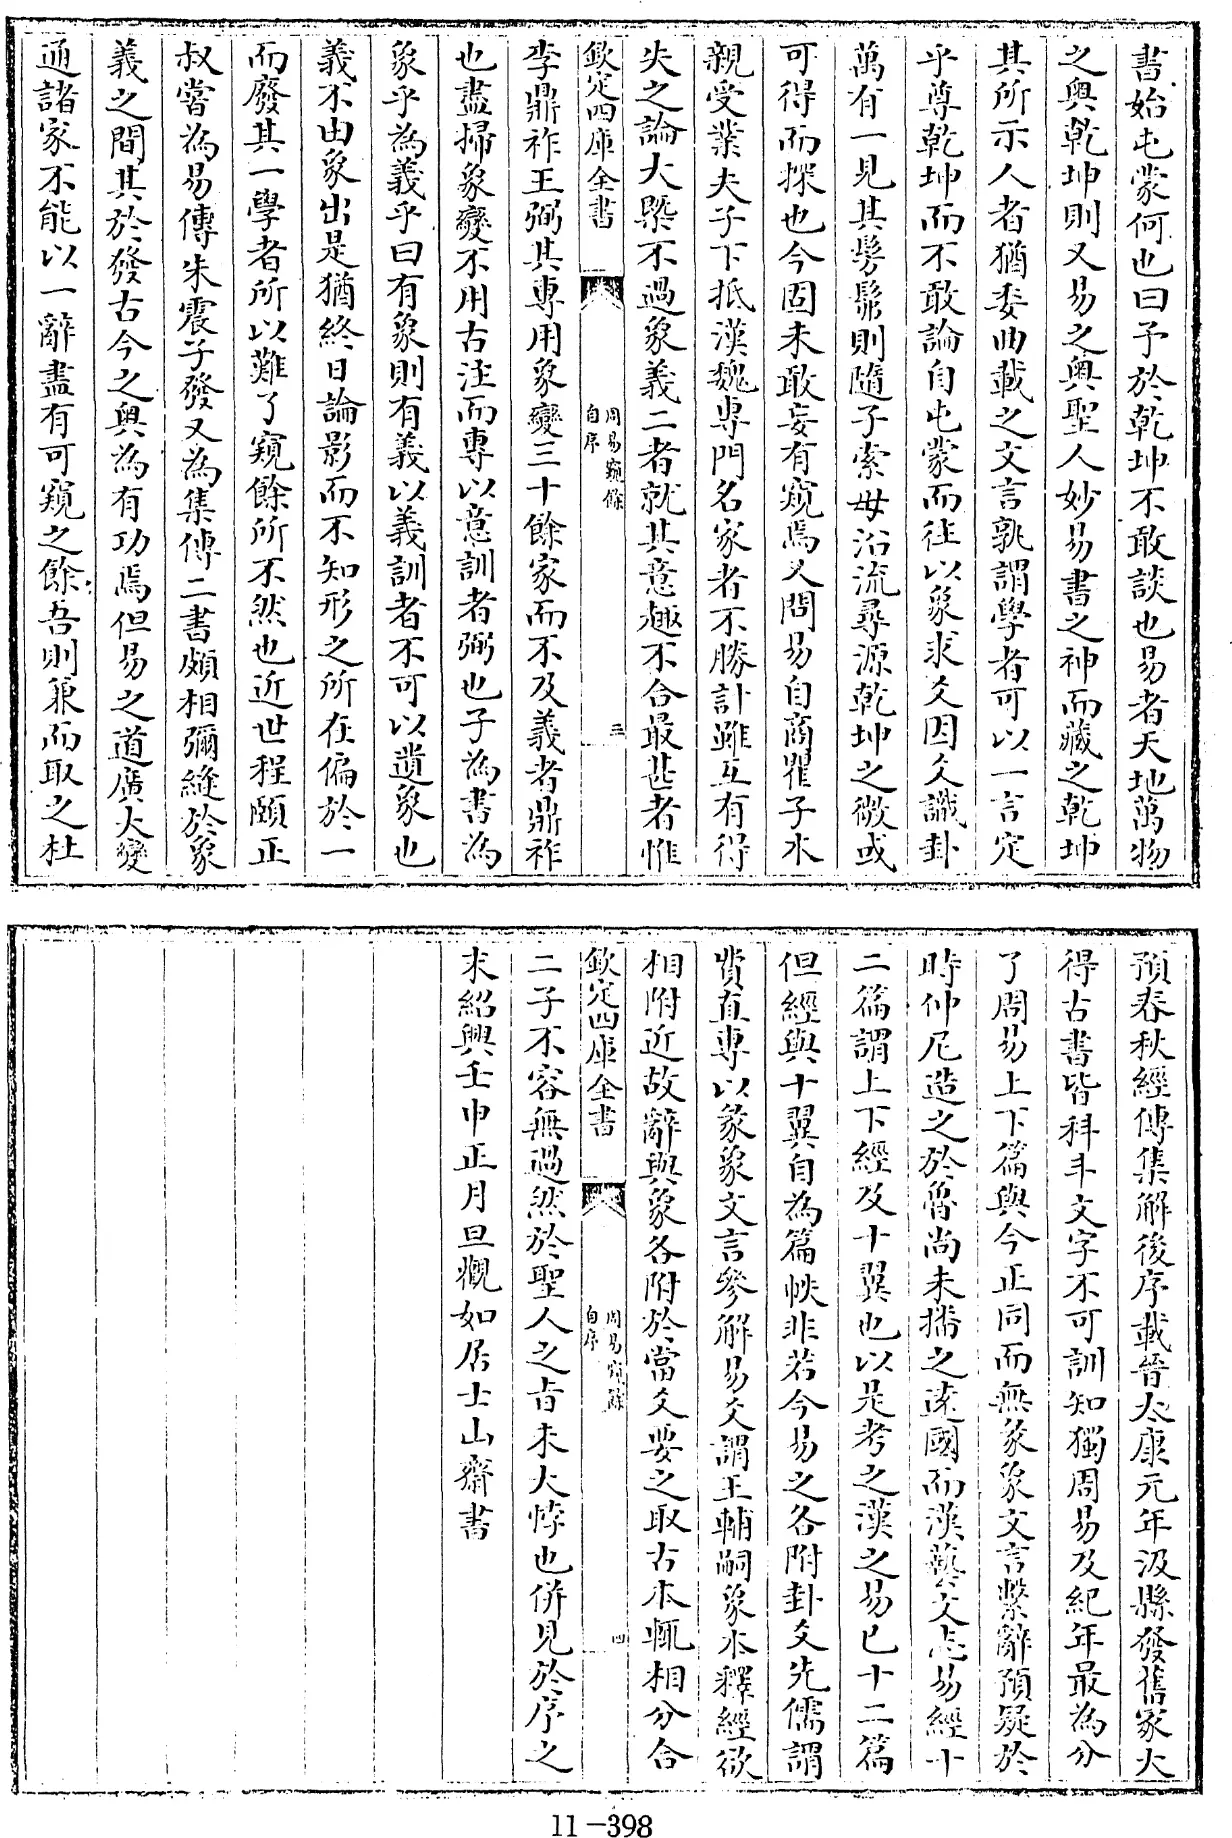 書始屯蒙何也曰予於乾坤不敢談也易者天地萬物
之奧乾坤則又易之奧聖人妙易書之神而藏之乾坤
其所示人者猶委曲載之文言孰謂學者可以一言定
乎尊乾坤而不敢論自屯蒙而往以象求爻因爻識卦
萬有一見其髣髴則隨子索母沿流尋源乾坤之微或
可得而探也今固未敢妄有窺焉又問易自商瞿子木
親受業夫子下抵漢魏專門名家者不勝計雖互有得
失之論大槩不過象義二者就其意趣不合最甚者惟
欽定四庫全書
周易窺餘
自序
三
李鼎祚王弼其專用象變三十餘家而不及義者鼎祚
也盡掃象變不用古注而專以意訓者弼也子為書為
象乎為義乎曰有象則有義以義訓者不可以遺象也
義不由象出是猶終日論影而不知形之所在偏於一
而廢其一學者所以難了窺餘所不然也近世程頤正
叔嘗為易傳朱震子發又為集傳二書頗相彌縫於象
義之間其於發古今之奧為有功焉但易之道廣大變
通諸家不能以一辭盡有可窺之餘吾則兼而取之杜
預春秋經傳集解後序載晉太康元年汲縣發舊冢大
得古書皆科斗文字不可訓知獨周易及紀年最為分
了周易上下篇與今正同而無彖象文言繫辭預疑於
時仲尼造之於魯尚未播之遠國而漢藝文志易經十
二篇謂上下經及十翼也以是考之漢之易已十二篇
但經與十翼自為篇帙非若今易之各附卦爻先儒謂
費直專以彖象文言參解易爻謂王輔嗣象本釋經欲
相附近故辭與象各附於當爻要之取古本輒相分合
欽定四庫全書
周易窺餘
自序
四
二子不容無過然於聖人之旨未大悖也併見於序之
末紹興壬申正月旦觀如居士山齋書
11-398